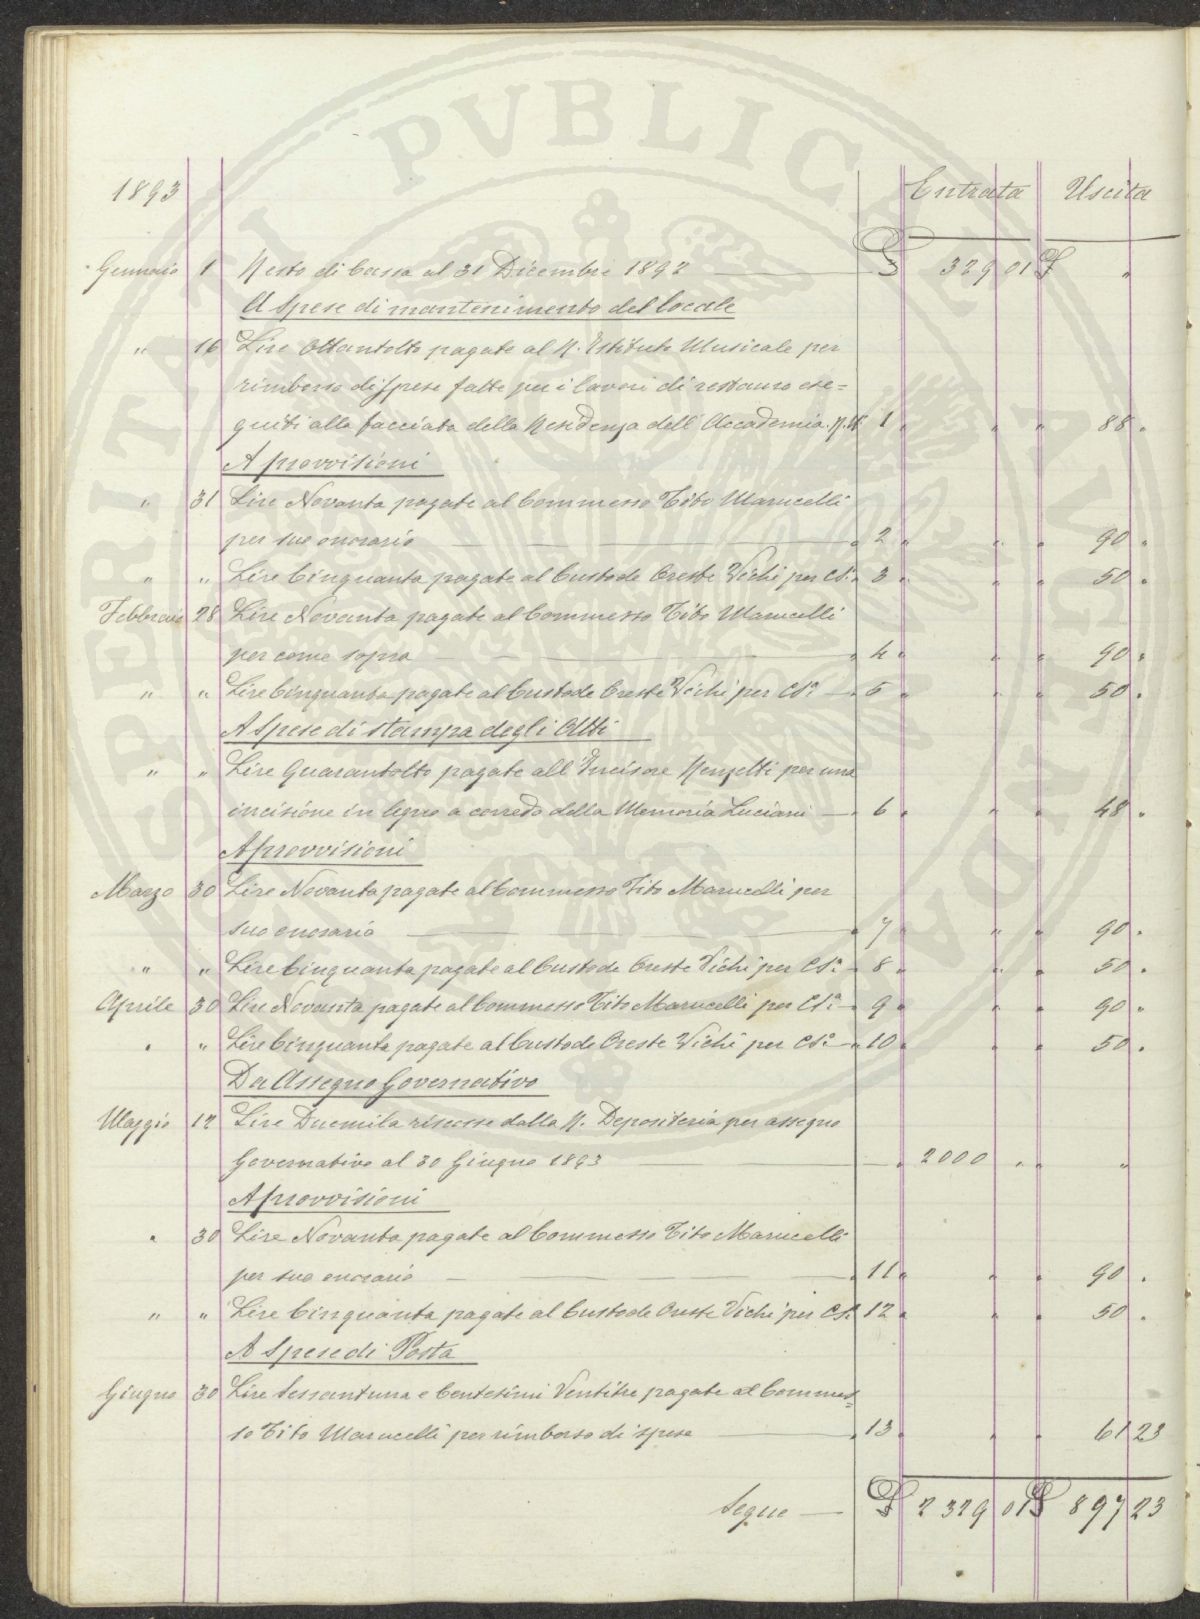 PVBLICAE
1893 Entrata Uscita
Gennaio 1 Resto di Cassa al 31 Dicembre 1892 — £ 329 01 £ "
A Spese di mantenimento del locale
" 16 Lire Ottantotto pagate al R. Istituto Musicale per
rimborso di spese fatte per i lavori di restauro ese=
guiti alla facciata della Residenza dell'Accademia. 1 " " " 88 "
A provvisioni
" 31 Lire Novanta pagate al Commesso Tito Marucelli
per suo onorario — " 2 " " " 90 "
" " Lire Cinquanta pagate al Custode Oreste Vichi per Cs.° " 3 " " " 50 "
Febbraio 28 Lire Novanta pagate al Commesso Tito Marucelli
per come sopra — " 4 " " " 90 "
" " Lire Cinquanta pagate al Custode Oreste Vichi per Cs.° — " 5 " " " 50 "
A Spese di stampa degli Atti
" " Lire Quarantotto pagate all'Incisore per una
incisione in legno a corredo della Memoria Luciani — " 6 " " " 48 "
A provvisioni
Marzo 30 Lire Novanta pagate al Commesso Tito Marucelli per
suo onorario — " 7 " " " 90 "
" " Lire Cinquanta pagate al Custode Oreste Vichi per Cs.° " 8 " " " 50 "
Aprile 30 Lire Novanta pagate al Commesso Tito Marucelli per Cs.° " 9 " " " 90 "
" " Lire Cinquanta pagate al Custode Oreste Vichi per Cs.° " 10 " " " 50 "
Da Assegno Governativo
Maggio 12 Lire Duemila riscosse dalla R. Depositeria per assegno
Governativo al 30 Giugno 1893 — " 2000 " " "
A provvisioni
" 30 Lire Novanta pagate al Commesso Tito Marucelli
per suo onorario — " 11 " " " 90 "
" " Lire Cinquanta pagate al Custode Oreste Vichi per Cs.° 12 " " " 50 "
A Spese di Posta
Giugno 30 Lire Sessantuna e Centesimi Ventitre pagate al Commes=
so Tito Marucelli per rimborso di spese — " 13 " " " 61 23
Segue — £ 2329 01 £ 897 23